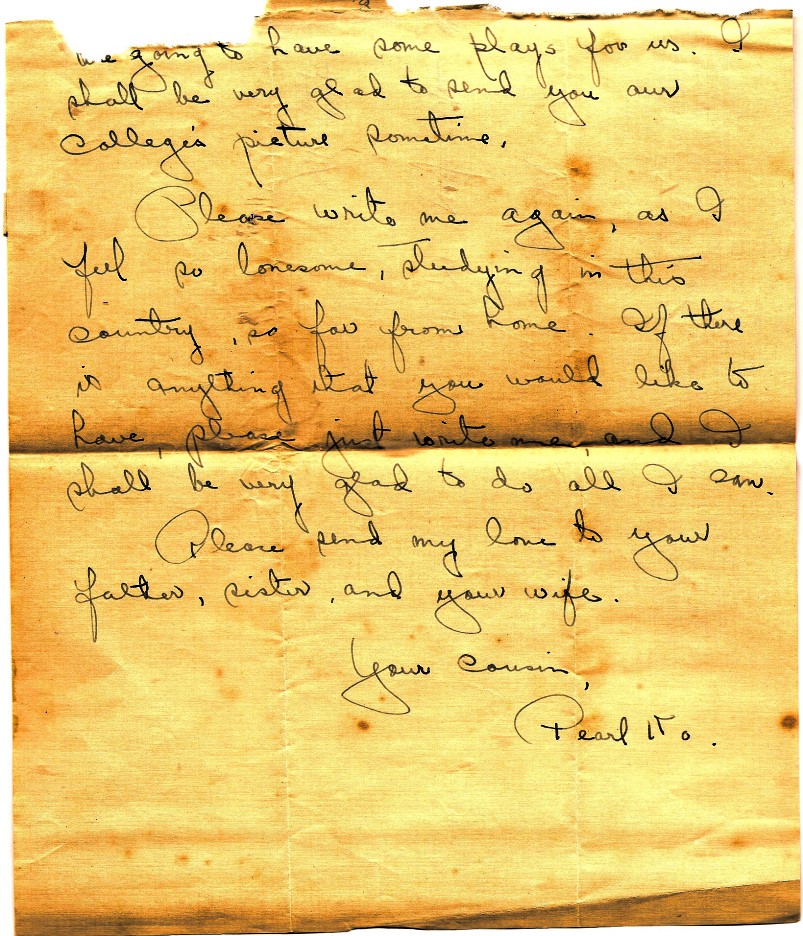 going to have some plays for us. I
shall be very glad to send you our
College's picture sometime.
Please write me again, as I
feel so lonesome, studying in this
country, so far from home. If there
is anything that you would like to
have, please just write me, and I
shall be very glad to do all I can.
Please send my love to your
father, sister, and your wife.
Your cousin,
Pearl Ito.